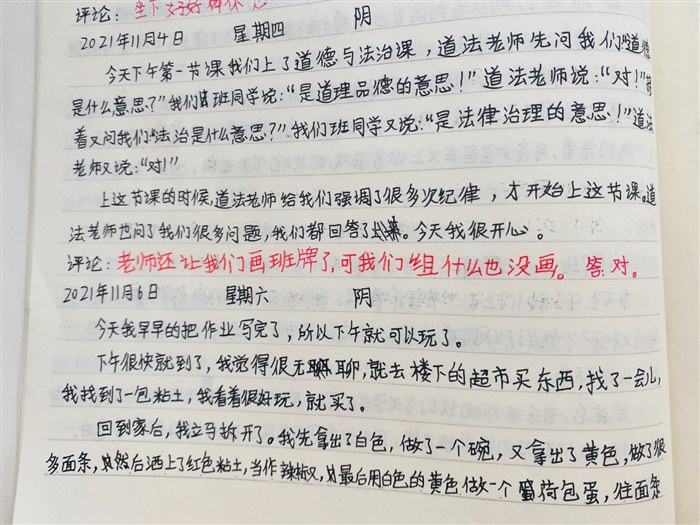 评论：
2021年11月4日 星期四 阴
今天下午第一节课我们上了道德与法治课，道法老师先问我们道德
是什么意思？"我们班同学说："是道理品德的意思！"道法老师说："对！"接
着又问我们"法治是什么意思？"我们班同学又说："是法律治理的意思！"道法
老师又说："对！"
上这节课的时候，道法老师给我们强调了很多次纪律，才开始上这节课。道
法老师也问了我们很多问题，我们都回答了。今天我很开心。
评论：老师还让我们画班牌了，可我们组什么也没画。答对。
2021年11月6日 星期六 阴
今天我早早的把作业写完了，所以下午就可以玩了。
下午很快就到了，我觉得很无聊，就去楼下的超市买东西，找了一会儿，
我找到了一包粘土，我看着很好玩，就买了。
回到家后，我立马拆开了。我先拿出了白色，做了一个碗，又拿出了黄色，做了很
多面条，然后洒上了红色粘土，当作辣椒，最后用白色的黄色做一个荷包蛋，往面条